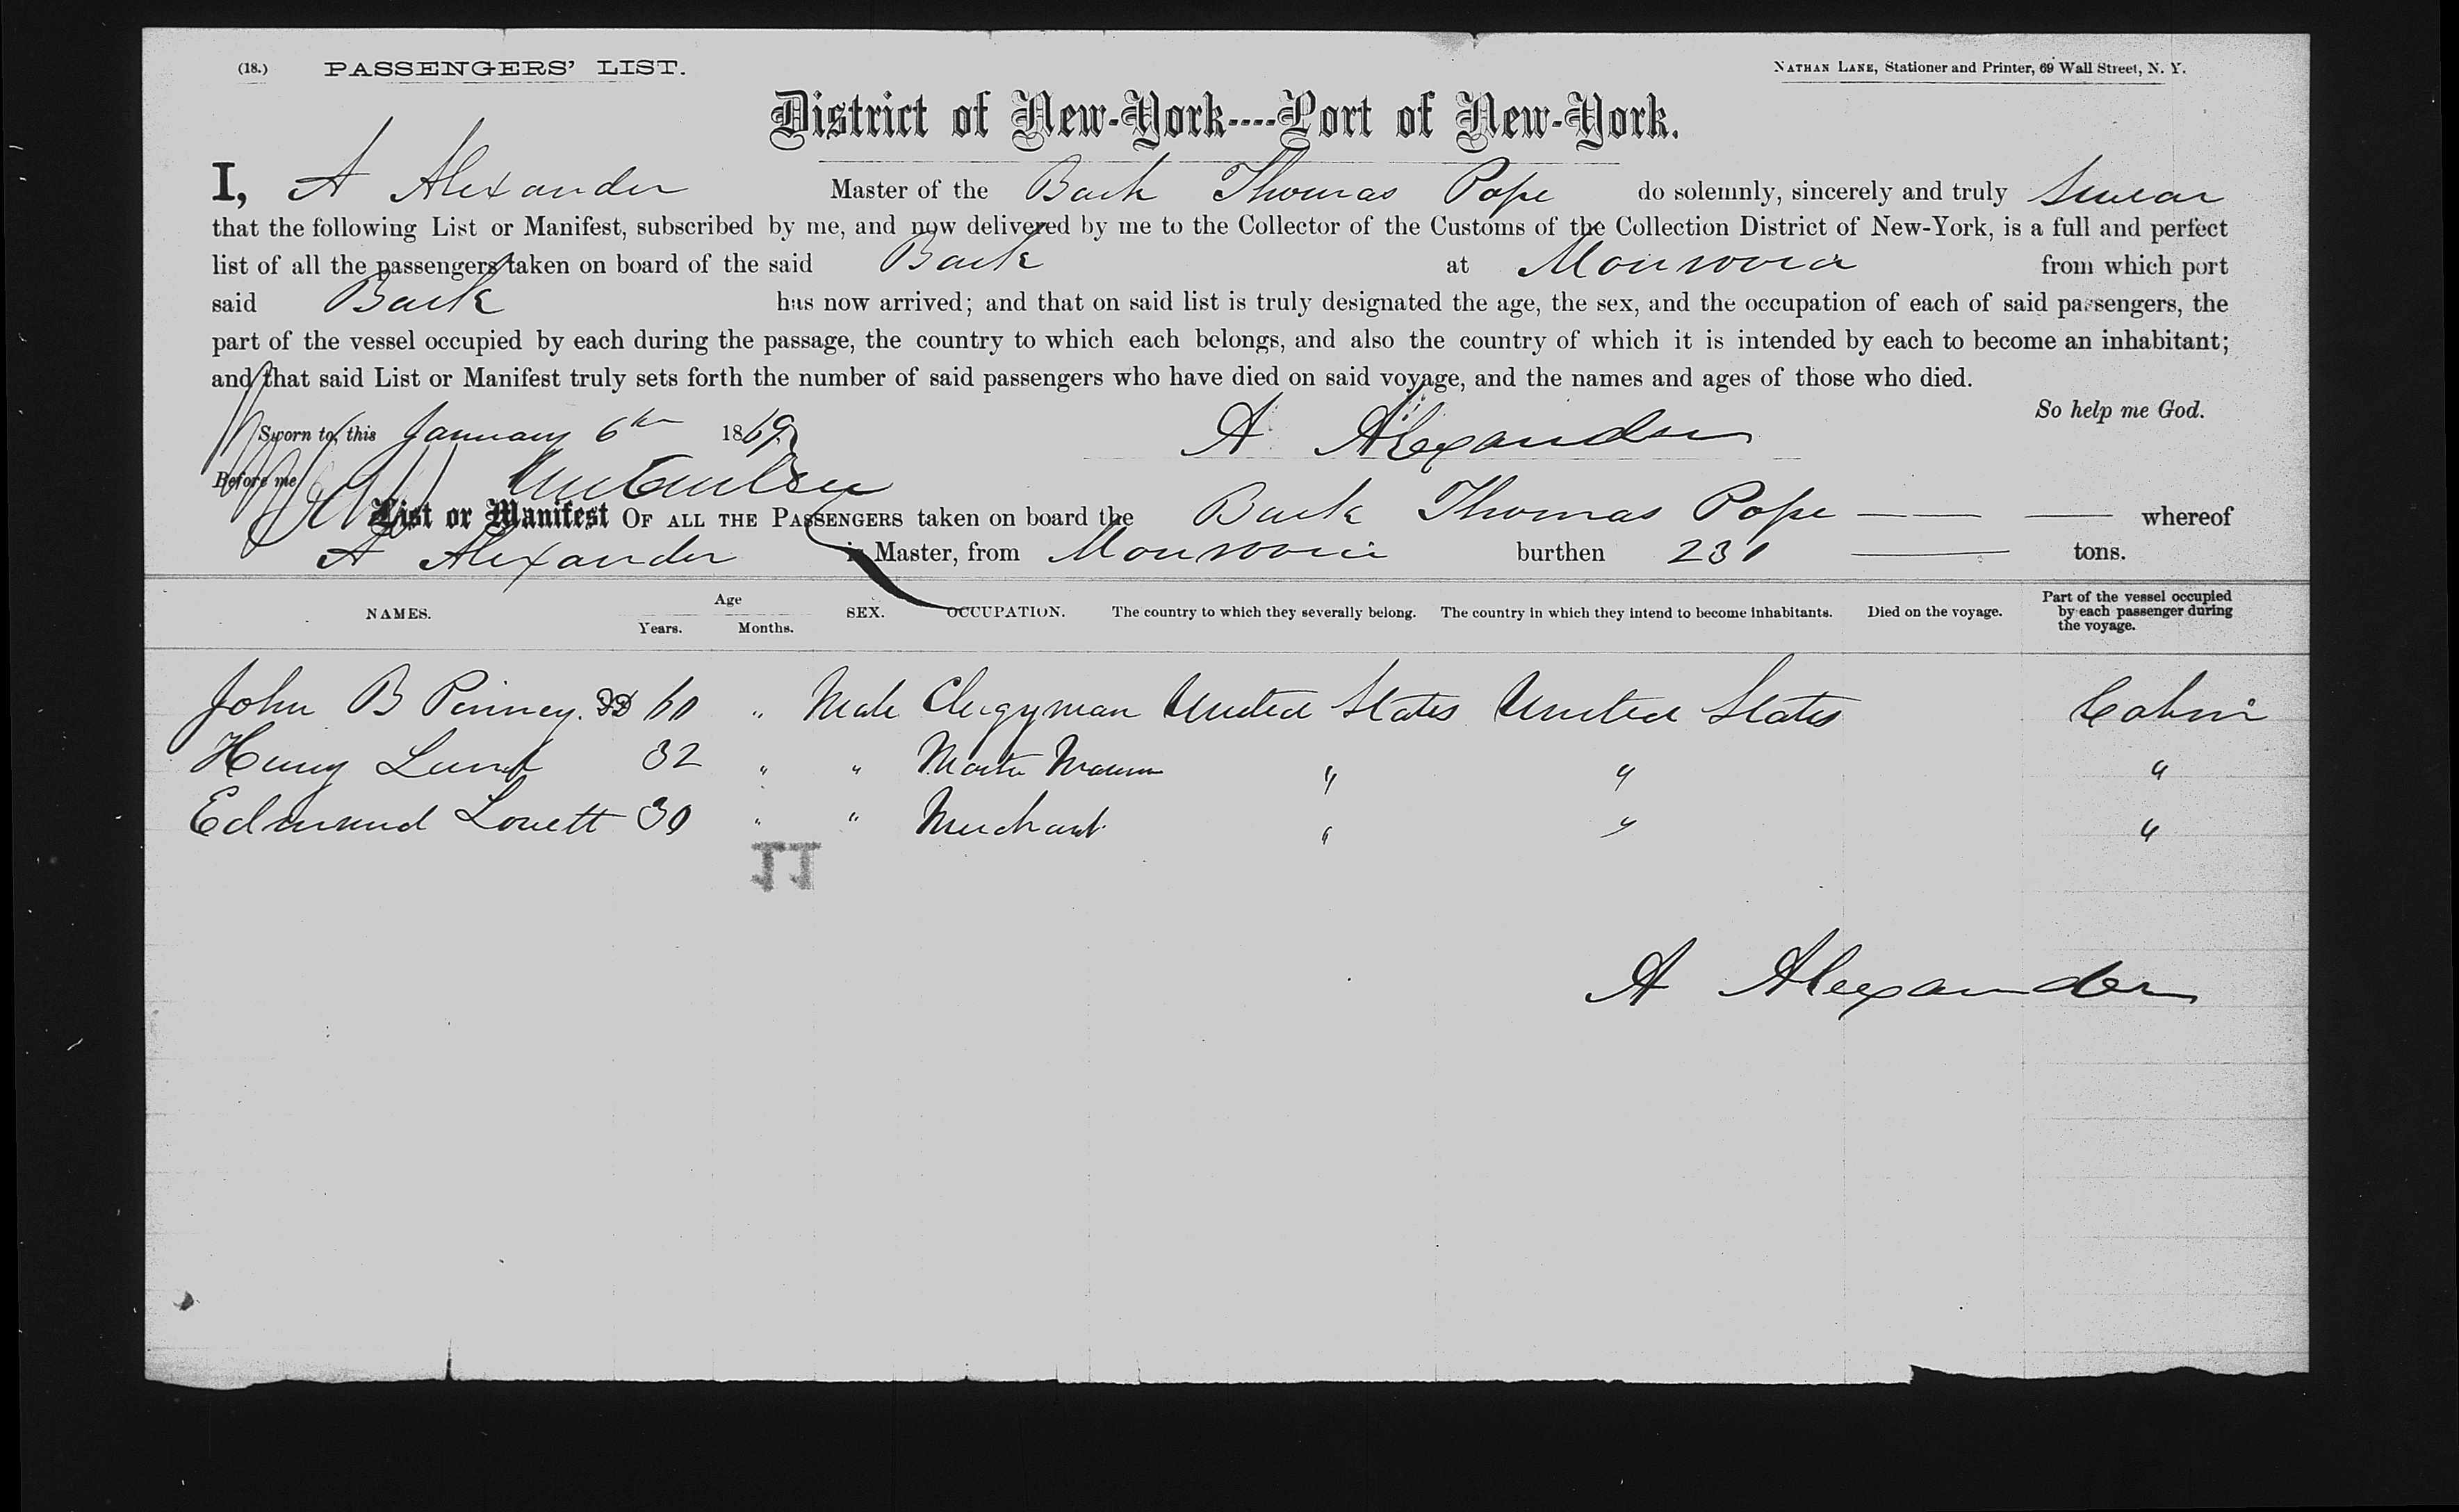 (18.) PASSENGERS' LIST.
NATHAN LANE, Stationer and Printer, 69 Wall Street, N. Y.
District of New-York----Port of New-York.
I, A Alexander Master of the Bark Thomas Pope do solemnly, sincerely and truly swear
that the following List or Manifest, subscribed by me, and now delivered by me to the Collector of the Customs of the Collection District of New-York, is a full and perfect
list of all the passengers taken on board of the said Bark at Monrovia from which port
said Bark has now arrived; and that on said list is truly designated the age, the sex, and the occupation of each of said passengers, the
part of the vessel occupied by each during the passage, the country to which each belongs, and also the country of which it is intended by each to become an inhabitant;
and that said List or Manifest truly sets forth the number of said passengers who have died on said voyage, and the names and ages of those who died.
So help me God.
Sworn to, this January 6th 1869 A Alexander
Before me
List or Manifest OF ALL THE PASSENGERS taken on board the Bark Thomas Pope whereof
A Alexander is Master, from Monrovia burthen 231 tons.
NAMES. Age Years. Months. SEX. OCCUPATION. The country to which they severally belong. The country in which they intend to become inhabitants. Died on the voyage. Part of the vessel occupied by each passenger during the voyage.
John B Pinney. DD 60 " Male Clergyman United States United States Cabin
Henry Lunt 32 " " Master Mariner " " "
Edmund Lovett 30 " " Merchant " " "
11
A Alexander